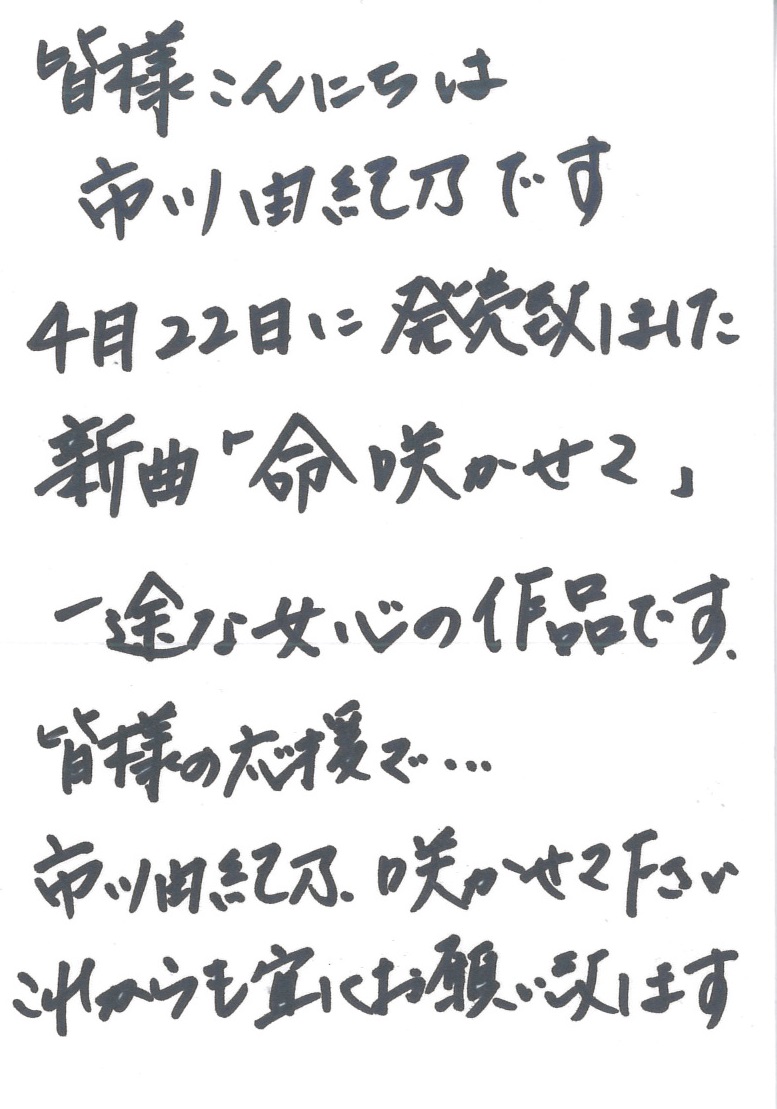 皆様こんにちは
市川由紀乃です
4月22日に発売致しました
新曲「命咲かせて」
一途な女心の作品です、
皆様の応援で…
市川由紀乃、咲かせて下さい
これからも宜しくお願い致します